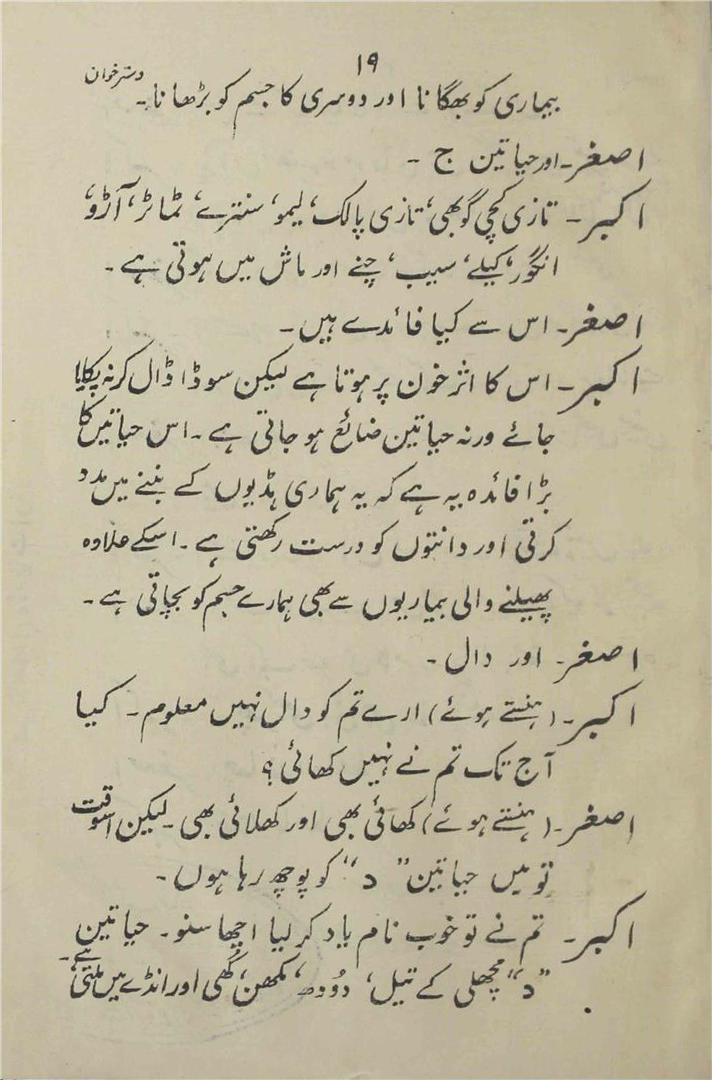 ۱۹
دسترخوان
بیماری کو بھگانا اور دوسری کا جسم کو بڑھانا۔
اصغر۔ اور حیاتین ج ۔
اکبر۔ تازی کچی گوبھی، تازی پالک، لیمو، سنترے، ٹماٹر، آڑو،
انگور، کیلے، سیب، چنے اور ماش میں ہوتی ہے۔
اصغر۔ اس سے کیا فائدے ہیں۔
اکبر۔ اس کا اثر خون پر ہوتا ہے لیکن سوڈا ڈال کر نہ پکایا
جائے ورنہ حیاتین ضائع ہو جاتی ہے۔ اس حیاتین کا
بڑا فائدہ یہ ہے کہ یہ ہماری ہڈیوں کے بننے میں مدد
کرتی اور دانتوں کو درست رکھتی ہے۔ اسکے علاوہ
پھیلنے والی بیماریوں سے بھی ہمارے جسم کو بچاتی ہے۔
اصغر۔ اور دال ۔
اکبر۔ (ہنستے ہوئے) ارے تم کو دال نہیں معلوم۔ کیا
آج تک تم نے نہیں کھائی؟
اصغر۔ (ہنستے ہوئے) کھائی بھی اور کھلائی بھی۔ لیکن اسوقت
تو میں حیاتین ”د“ کو پوچھ رہا ہوں۔
اکبر۔ تم نے تو خوب نام یاد کر لیا اچھا سنو۔ حیاتین
”د“ مچھلی کے تیل، دودھ، مکھن، گھی اور انڈے میں ملتی ہے۔